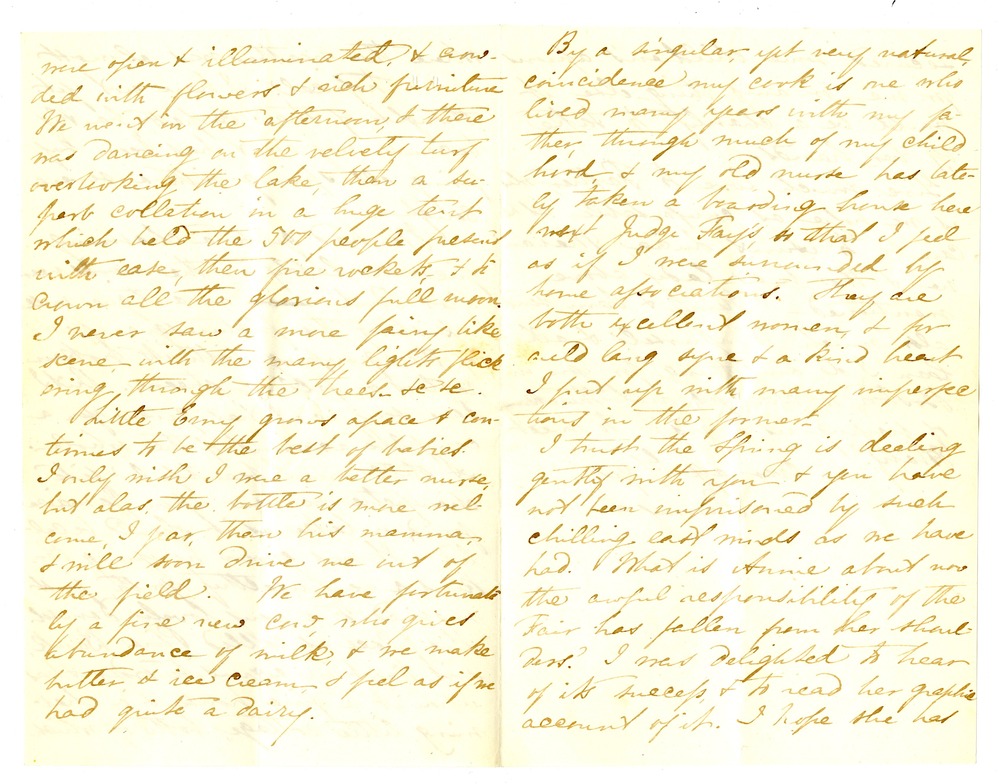 were open & illuminated, & crow-
ded with flowers & rich furniture
We went in the afternoon, & there
was dancing on the velvety turf
overlooking the lake, then a su-
perb collation in a huge tent
which held the 500 people present
with ease, then fire rockets, & to
crown all, the glorious full moon.
I never saw a more fairy like
scene, with the many lights flick
ering through the trees &c &c.
Little Erny grows apace & con-
tinues to be the best of babies.
I only wish I were a better nurse,
but alas, the bottle is more wel-
come, I fear, than his mamma,
& will soon drive me out of
the field. We have fortunate
ly a fine new cow, who gives
abundance of milk, & we make
butter & ice cream, & feel as if we
had quite a dairy.
By a singular, yet very natural,
coincidence my cook is one who
lived many years with my fa-
ther, through much of my child
hood, & my old nurse has late-
ly taken a boarding house here
next Judge Fay's so that I feel
as if I were surrounded by
home associations. They are
both excellent women, & for
auld lang syne & a kind heart
I put up with many imperfec
tions in the former.
I trust the Spring is dealing
gently with you & you have
not been imprisoned by such
chilling east winds as we have
had. What is Annie about now
the awful responsibility of the
Fair has fallen from her shoul-
ders? I was delighted to hear
of its success, & to read her graphic
account of it. I hope she has